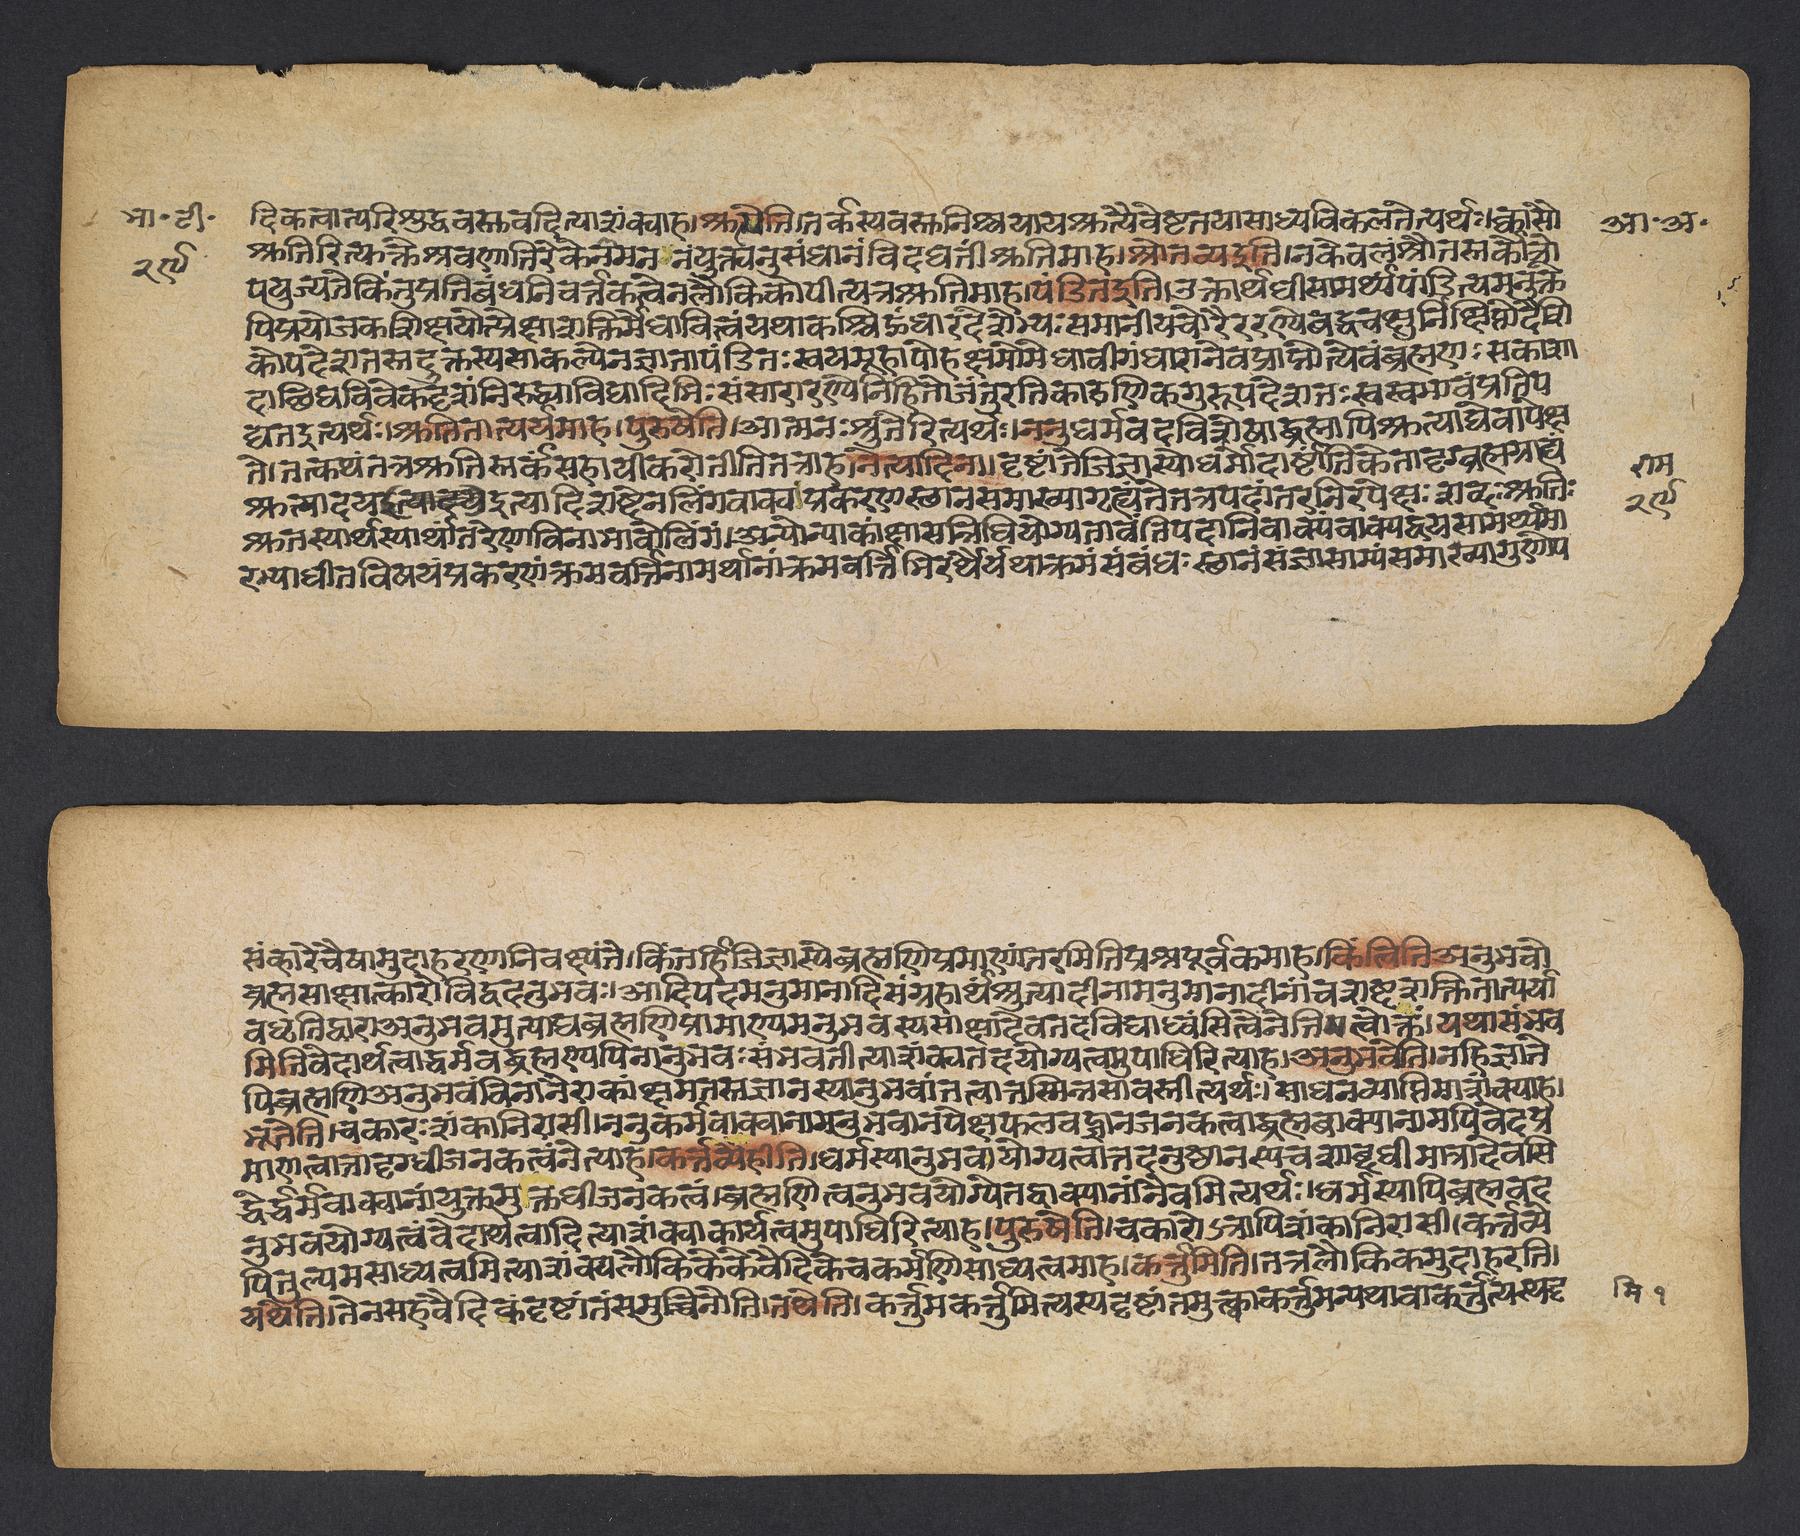 भा॰ टी॰
२९
आ॰ अ॰
दिकत्वात्परिशुद्धवस्तवदित्याशंक्याह।श्रुत्येति।तर्कस्यवस्तुनिश्चयायश्रुत्यैवेष्टतयासाध्यविकलतेत्यर्थः।क्वासौ
श्रुतिरित्युक्तेश्रवणातिरेकेनमननंयुक्त्यनुसंधानंविदधतींश्रुतिमाह।श्रोतव्यइति।नकेवलंश्रौतस्तर्कोत्रो
पयुज्यतेकिंतुप्रतिबंधनिवर्त्तकत्वेनलौकिकोपीत्यत्रश्रुतिमाह।पंडितइति।उक्तार्थधीसामर्थ्यंपांडित्यमनुक्ते
पिप्रयोजकशिक्षयोत्प्रेक्षाशक्तिर्मेधावित्वंयथाकश्चिद्गंधारदेशेभ्यःसमानीयचोरैररण्येबद्धचक्षुर्निक्षिप्तोदेशि
कोपदेशतस्तदुक्तस्यसाकल्येनज्ञातापंडितःस्वयमूहापोहक्षमोमेधावीगंधारानेवप्राप्नोत्येवंब्रह्मणःसकाशा
दाछिद्यविवेकदृशंनिरुध्याविद्यादिभिःसंसारारण्येनिहितोजंतुरतिकारुणिकगुरूपदेशतःस्वस्वभावंप्रतिप
द्यतइत्यर्थः।श्रुतितात्पर्यमाह।पुरुषेति।आत्मनःश्रुतेरित्यर्थः।ननुधर्मवदविशेषाद्ब्रह्मापिश्रुत्याद्येवापेक्ष
ते।तत्कथंतत्रश्रुतिस्तर्कंसहायीकरोतीतितत्राह।नेत्यादिना।दृष्टांतेजिज्ञास्योधर्मोदार्ष्टांतिकेतादृग्ब्रह्मग्राह्यं
श्रुत्यादयइत्यादिशब्देनलिंगवाक्यप्रकरणस्थानसमाख्यागृह्यंतेतत्रपदांतरनिरपेक्षःशब्दःश्रुतिः
राम
२९
श्रुतस्यार्थस्यार्थांतरेणाविनाभावोलिंगं।अन्योन्याकांक्षासन्निधियोग्यतावंतिपदानिवाक्यंवाक्यद्वयसामर्थ्यमा
रभ्याधीतविषयंप्रकरणंक्रमवर्त्तिनामर्थानांक्रमवर्त्तिभिरर्थैर्यथाक्रमंसंबंधःस्थानंसंज्ञासाम्यंसमाख्यागुणोप
संहारेचैषामुदाहरणानिवक्ष्यंते।किंतर्हिजिज्ञास्येब्रह्मणिप्रमाणांतरमितिप्रश्नपूर्वकमाह।किंत्वितिअनुभवो
ब्रह्मसाक्षात्कारोविद्वदनुभवः।आदिपदमनुमानादिसंग्रहार्थंश्रुत्यादीनामनुमानादीनांचशब्दशक्तितात्पर्या
वधृतिद्वाराअनुभवमुत्पाद्यब्रह्मणिप्रामाण्यमनुभवस्यसाक्षादेवतदविद्याध्वंसित्वेनेतियत्वोक्तं।यथासंभव
मितिवेदार्थत्वाद्धर्मवद्ब्रह्मण्यपिनानुभवःसंभवतीत्याशंक्यतदयोग्यत्वमुपाधिरित्याह।अनुभवेति।नहिज्ञाते
पिब्रह्मणिअनुभवंविनानैराकांक्ष्यमतस्तज्ज्ञानस्यानुभवांतत्वात्तस्मिन्नसावस्तीत्यर्थः।साधनव्याप्तिमाशंक्याह।
भूतेति।चकारःशंकानिरासी।ननुकर्मवाक्यानामनुभवानपेक्षफलवद्ज्ञानजनकत्वाद्ब्रह्मवाक्यानामपिवेदप्र
माणत्वात्तादृग्धीजनकत्वंनेत्याह।कर्त्तव्येहीति।धर्मस्यानुभवायोग्यत्वात्तदनुष्ठानस्यचशाब्दधीमात्रादेवसि
द्धेर्द्धर्मवाक्यानांयुक्तमुक्तधीजनकत्वं।ब्रह्मणित्वनुभवयोग्येतद्वाक्यानांनैवमित्यर्थः।धर्मस्यापिब्रह्मवद
नुभवयोग्यत्वंवेदार्थत्वादित्याशंक्याकार्यत्वमुपाधिरित्याह।पुरुषेति।चकारोऽत्रापिशंकानिरासी।कर्त्तव्ये
पितुल्यमसाध्यत्वमित्याशंक्यलौकिकेकेवैदिकेचकर्मणिसाध्यत्वमाह।कर्त्तुमिति।तत्रलौकिकमुदाहरति।
यथेति।तेनसहवैदिकंदृष्टांतंसमुच्चिनोति।तथेति।कर्त्तुमकर्त्तुमित्यस्यदृष्टांतमुत्क्वाकर्त्तुमन्यथावाकर्त्तुत्यस्यदृ